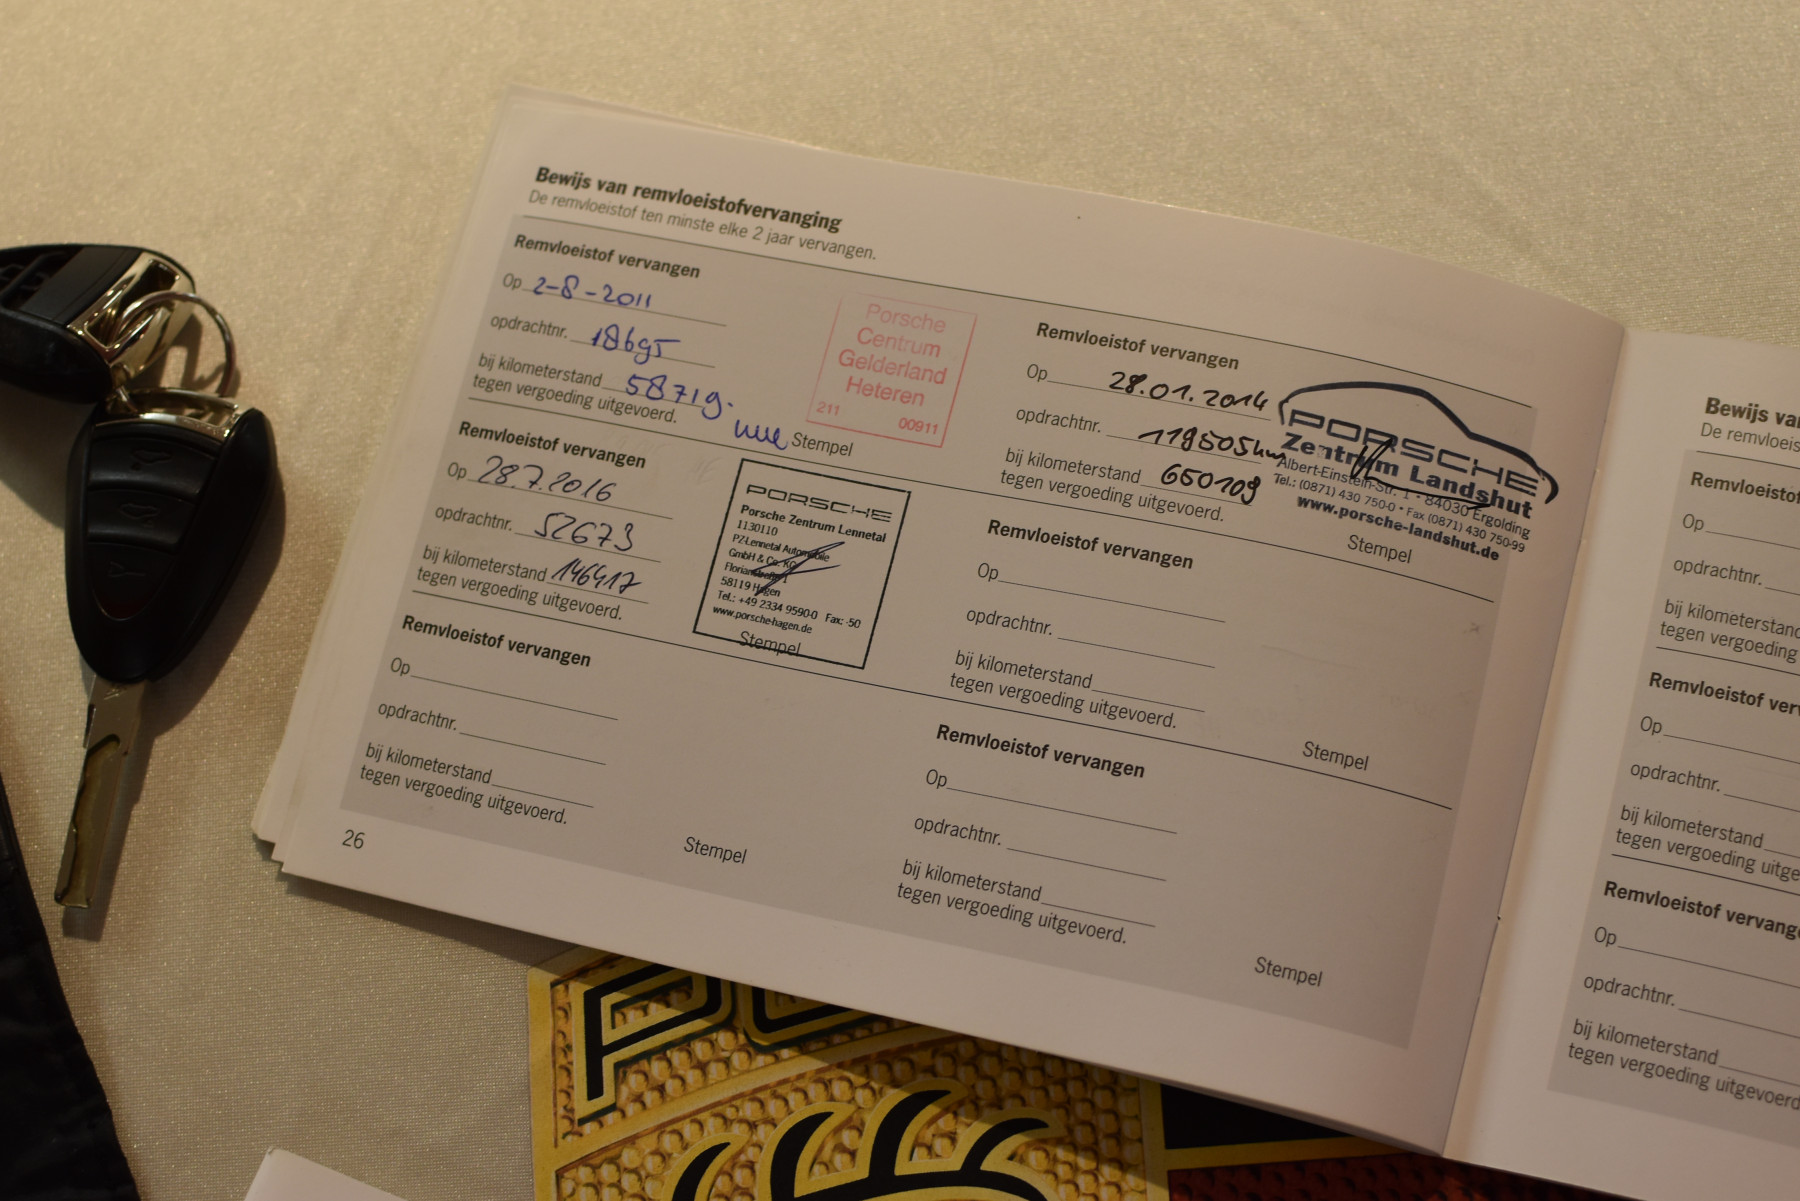 Bewijs van remvloeistofvervanging
De remvloeistof ten minste elke 2 jaar vervangen.
Remvloeistof vervangen
Op 2-8-2011
opdrachtnr. 18695
bij kilometerstand 58719.
tegen vergoeding uitgevoerd.
Stempel
Porsche
Centrum
Gelderland
Heteren
211 00911
Remvloeistof vervangen
Op 28.01.2014
opdrachtnr. 119505km
bij kilometerstand 650109
tegen vergoeding uitgevoerd.
Stempel
PORSCHE
Zentrum Landshut
Albert-Einstein-Str. 1 • 84030 Ergolding
Tel.: (0871) 430 750-0 • Fax (0871) 430 750-99
www.porsche-landshut.de
Remvloeistof vervangen
Op 28.7.2016
opdrachtnr. 52673
bij kilometerstand 146417
tegen vergoeding uitgevoerd.
Stempel
PORSCHE
Porsche Zentrum Lennetal
1130110
PZ-Lennetal Automobile
GmbH & Co. KG
58119 Hagen
Tel.: +49 2334 9590-0 Fax: -50
www.porsche-hagen.de
Remvloeistof vervangen
Op
opdrachtnr.
bij kilometerstand
tegen vergoeding uitgevoerd.
Stempel
Remvloeistof vervangen
Op
opdrachtnr.
bij kilometerstand
tegen vergoeding uitgevoerd.
Stempel
Remvloeistof vervangen
Op
opdrachtnr.
bij kilometerstand
tegen vergoeding uitgevoerd.
Stempel
26
Bewijs va
De remvloeis
Remvloeistof
Op
opdrachtnr.
bij kilometerstand
tegen vergoeding
Remvloeistof ver
Op
opdrachtnr.
bij kilometerstand
tegen vergoeding uitge
Remvloeistof vervang
Op
opdrachtnr.
bij kilometerstand
tegen vergoeding uitgevoerd